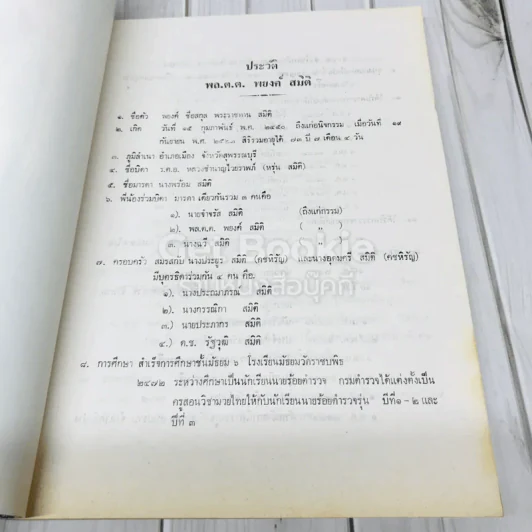 ประวัติ
พล.ต.ต. พยงค์ สมิติ
๑. ชื่อตัว พยงค์ ชื่อสกุล พระราชทาน สมิติ
๒. เกิด วันที่ ๑๕ กุมภาพันธ์ พ.ศ. ๒๔๕๐ ถึงแก่อนิจกรรม เมื่อวันที่ ๑๙
กันยายน พ.ศ. สิริรวมอายุได้ ๗๓ ปี ๗ เดือน ๔ วัน
๓. ภูมิลำเนา อำเภอเมือง จังหวัดสุพรรณบุรี
๔. ชื่อบิดา ร.ต.อ. หลวงชำนาญไวยราพภ์ (หรุ่น สมิติ)
๕. ชื่อมารดา นางพร้อม สมิติ
๖. พี่น้องร่วมบิดา มารดา เดียวกันรวม ๓ คนคือ
๑). นายจำรัส สมิติ (ถึงแก่กรรม)
๒). พล.ต.ต. พยงค์ สมิติ ( " )
๓. นางนวี สมิติ ( " )
๗. ครอบครัว สมรสกับ นางประยูร สมิติ (คชหิรัญ) และนางอุดมศรี สมิติ (คชหิรัญ)
มีบุตรธิดาร่วมกัน ๔ คน คือ
๑). นางประถมาภรณ์ สมิติ
๒). นางกรรณิกา สมิติ
๓.) นายประภากร สมิติ
๔.) ด.ช. รัฐวุฒิ สมิติ
Get Bookie
ร้านหนังสือบุ๊คกี้
๘. การศึกษา สำเร็จการศึกษาชั้นมัธยม ๖ โรงเรียนมัธยมวัดราชบพิธ
๒๔๗๒ ระหว่างศึกษาเป็นนักเรียนนายร้อยตำรวจ กรมตำรวจได้แต่งตั้งเป็น
ครูสอนวิชามวยไทยให้กับนักเรียนนายร้อยตำรวจรุ่น ปีที่ ๑ - ๒ และ
ปีที่ ๓